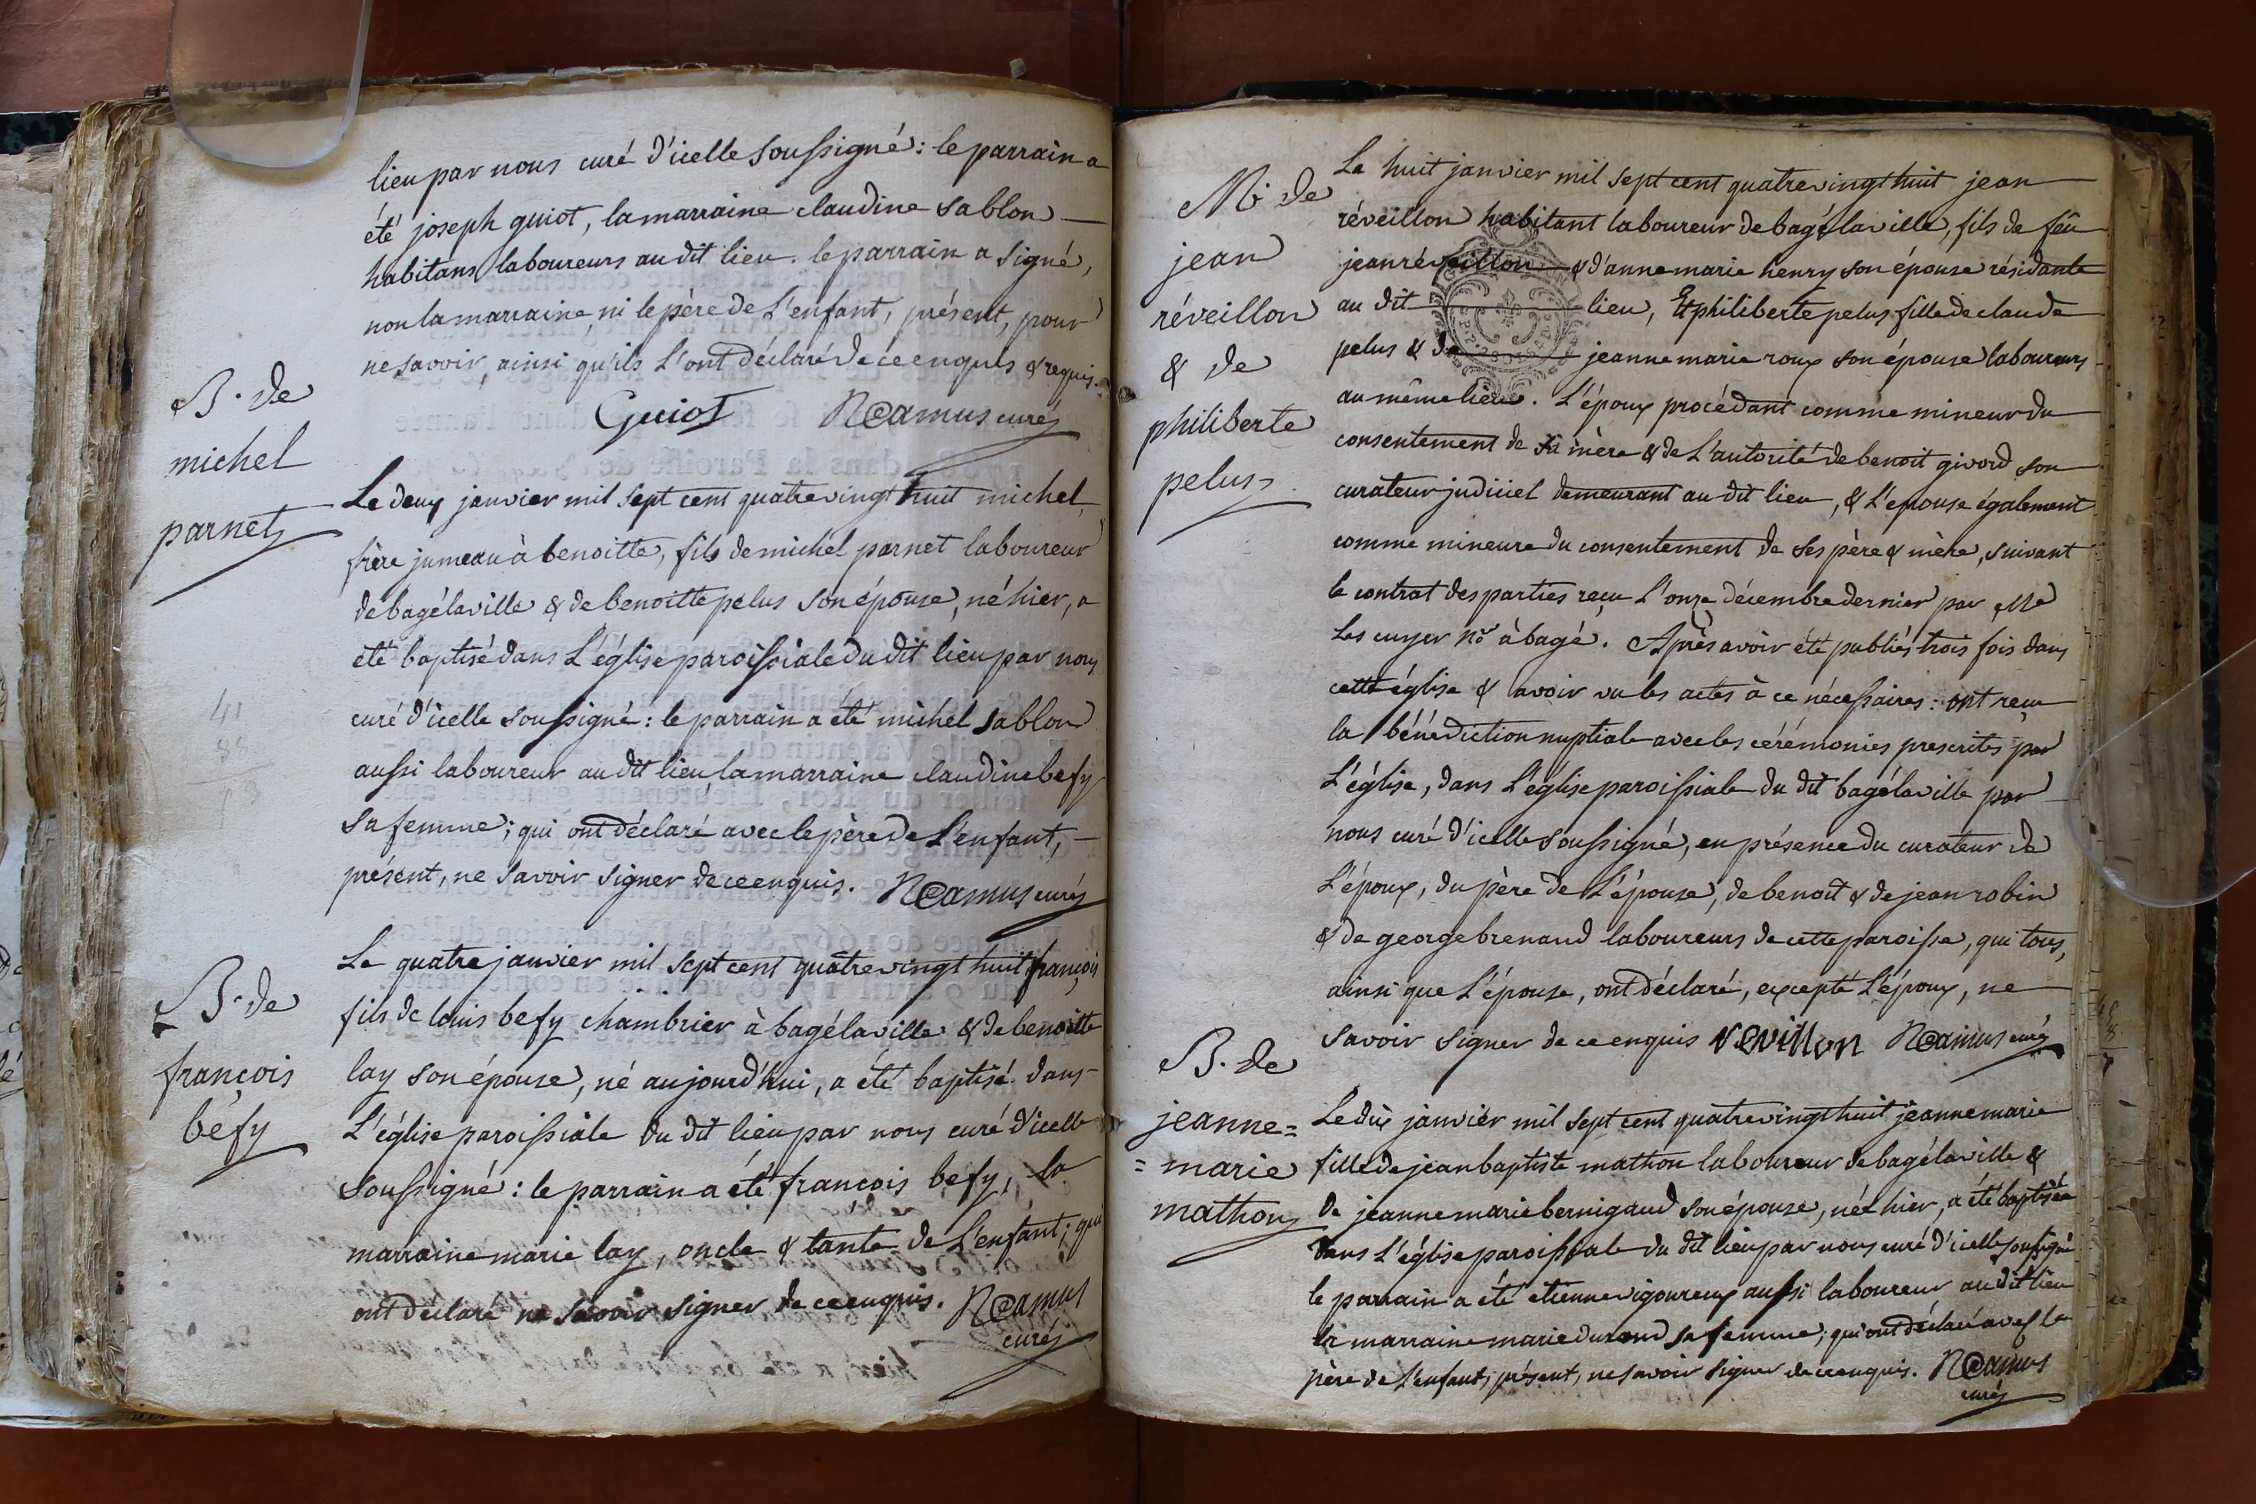 lieu par nous curé d'icelle soussigné : le parrain a
été joseph guiot, la marraine claudine sablon
habitans laboureurs au dit lieu. le parrain a signé,
non la marraine, ni le père de l'enfant, présent, pour
ne savoir, ainsi qu'ils l'ont déclaré de ce enquis & requis.
Guiot Ncamus curé
B. de
michel
parnet
Le deux janvier mil sept cent quatre vingt huit michel,
frère jumeau à benoitte, fils de michel parnet laboureur
de bagélaville & de benoitte pelus son épouse, né hier, a
été baptisé dans l'église paroissiale du dit lieu par nous
curé d'icelle soussigné : le parrain a été michel sablon
aussi laboureur au dit lieu la marraine claudine befy
sa femme ; qui ont déclaré avec le père de l'enfant,
présent, ne savoir signer de ce enquis. Ncamus curé
41
88
B. de
françois
béfy
Le quatre janvier mil sept cent quatre vingt huit françois
fils de louis befy chambrier à bagélaville & de benoitte
lay son épouse, né aujourd'hui, a été baptisé dans
l'église paroissiale du dit lieu par nous curé d'icelle
soussigné : le parrain a été françois befy, la
marraine marie lay, oncle & tante de l'enfant ; qui
ont déclaré ne savoir signer de ce enquis. Ncamus
curé
M. de
jean
réveillon
& de
philiberte
pelus
Le huit janvier mil sept cent quatre vingt huit jean
réveillon habitant laboureur de bagélaville, fils de feû
jean réveillon & d'anne marie henry son épouse résidante
au dit lieu, Et philiberte pelus fille de claude
pelus & de jeanne marie roux son épouse laboureurs
au même lieu. L'époux procédant comme mineur du
consentement de sa mère & de l'autorité de benoit givord son
curateur judiciel demeurant au dit lieu, & l'epouse également
comme mineure du consentement de ses père & mère, suivant
le contrat des parties reçu l'onze décembre dernier par Me
Lescuyer nre à bagé. Après avoir été publiés trois fois dans
cette église & avoir vu les actes à ce nécessaires : ont reçu
la bénédiction nuptiale avec les cérémonies prescrites par
l'église, dans l'église paroissiale du dit bagélaville par
nous curé d'icelle soussigné, en présence du curateur de
l'époux, du père de l'épouse, de benoit & de jean robin
& de george brenand laboureurs de cette paroisse, qui tous,
ainsi que l'épouse, ont déclaré, excepté l'époux, ne
savoir signer de ce enquis revillon Ncamus curé
B. de
jeanne=
=marie
mathon
Le dix janvier mil sept cent quatre vingt huit jeanne marie
fille de jean baptiste mathon laboureur de bagélaville &
de jeanne marie bernigaud son épouse, née hier, a été baptisée
dans l'église paroissiale du dit lieu par nous curé d'icelle soussigné
le parrain a été etienne vigoureux aussi laboureur au dit lieu
la marraine marie durand sa femme ; qui ont déclaré avec le
père de l'enfant, présent, ne savoir signer de ce enquis. Ncamus
curé